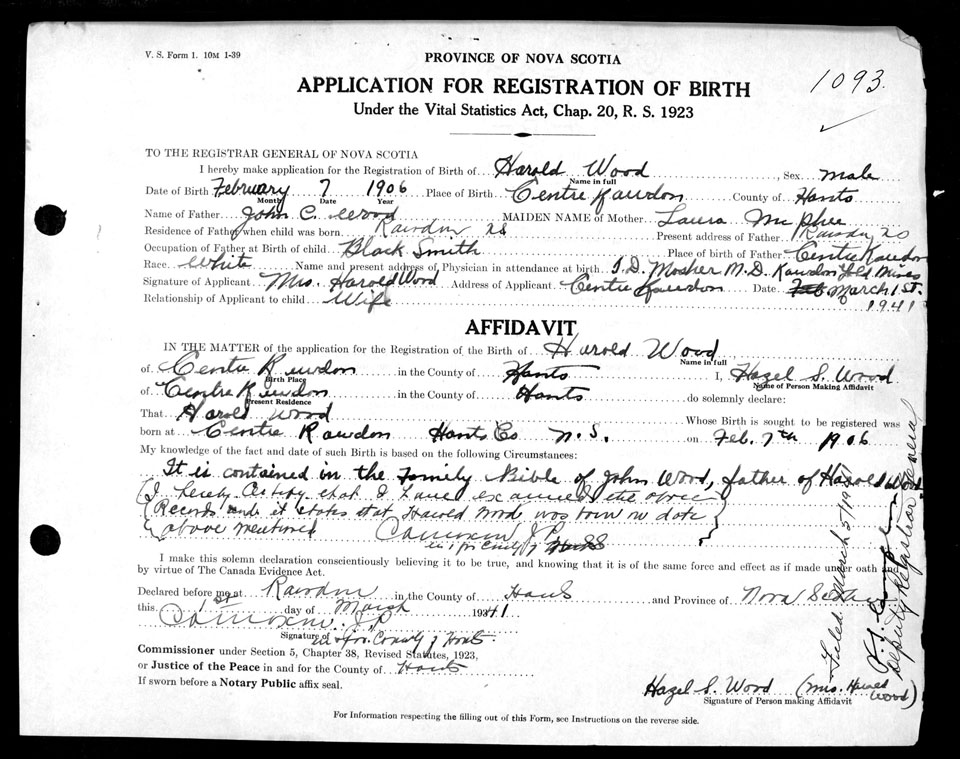 V. S. Form 1. 10M 1-39
PROVINCE OF NOVA SCOTIA
1093.
APPLICATION FOR REGISTRATION OF BIRTH
Under the Vital Statistics Act, Chap. 20, R. S. 1923
TO THE REGISTRAR GENERAL OF NOVA SCOTIA
I hereby make application for the Registration of Birth of Harold Wood, Sex male
Name in full
Date of Birth February 7 1906 Place of Birth Centre Rawdon County of Hants
Month Date Year
Name of Father John C. Wood MAIDEN NAME of Mother Laura McPhee
Residence of Father when child was born Rawdon NS Present address of Father Rawdon NS
Occupation of Father at Birth of child Black Smith Place of birth of Father Centre Rawdon
Race White Name and present address of Physician in attendance at birth J. D. Mosher M. D. Rawdon Gold Mines
Signature of Applicant Mrs. Harold Wood Address of Applicant Centre Rawdon Date Feb. March 1st.
Relationship of Applicant to child Wife 1941
AFFIDAVIT
IN THE MATTER of the application for the Registration of the Birth of Harold Wood
Name in full
of Centre Rawdon in the County of Hants I, Hazel S. Wood
Birth Place Name of Person Making Affidavit
of Centre Rawdon in the County of Hants do solemnly declare:
Present Residence
That Harold Wood Whose Birth is sought to be registered was
born at Centre Rawdon Hants Co N. S. on Feb. 7th 1906
My knowledge of the fact and date of such Birth is based on the following Circumstances:
It is contained in the Family Bible of John Wood, father of Harold Wood
I hereby Certify that I have examined the above
Records and it states that Harold Wood was born on date
above mentioned J.P.
in & for County of Hants
I make this solemn declaration conscientiously believing it to be true, and knowing that it is of the same force and effect as if made under oath and
by virtue of The Canada Evidence Act.
Declared before me at Rawdon in the County of Hants and Province of Nova Scotia
this 1st day of March 1941
J.P.
Signature of in & for County of Hants
Commissioner under Section 5, Chapter 38, Revised Statutes, 1923,
or Justice of the Peace in and for the County of Hants
If sworn before a Notary Public affix seal.
Hazel S. Wood (Mrs. Harold Wood)
Signature of Person making Affidavit
For Information respecting the filling out of this Form, see Instructions on the reverse side.
Filed March 5/1941
Deputy Registrar General